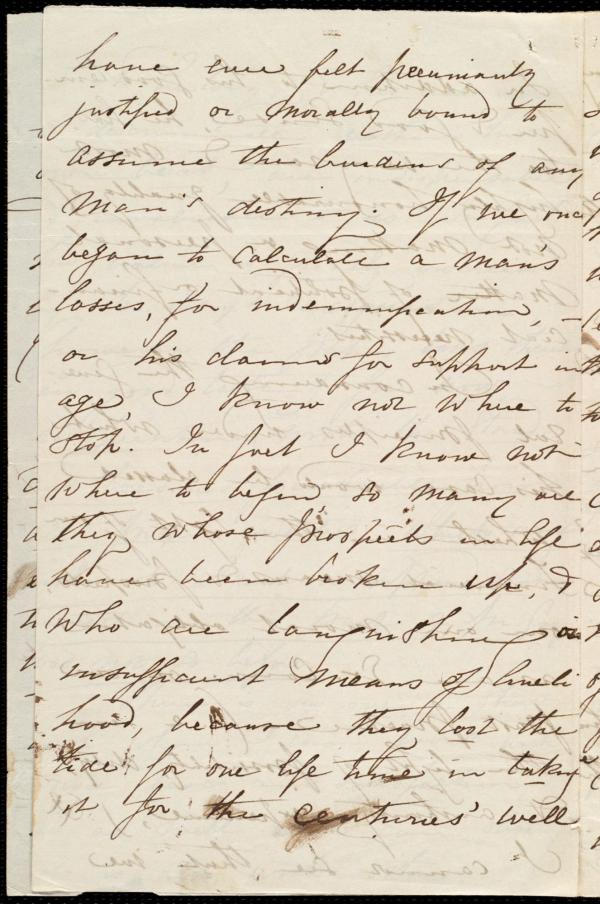 have ever felt pecuniarily
justified or morally bound to
assume the burdens of any
man's destiny. If we once
began to calculate a man's
losses, for indemnification, –
or his claims for support in
age, I know not where to
stop. In fact I know not
where to begin so many are
they whose prospects in life
have been broken up, &
who are languishing on
insufficient means of liveli
hood, because they lost the
tide for one life time in taking
it for the centuries' well